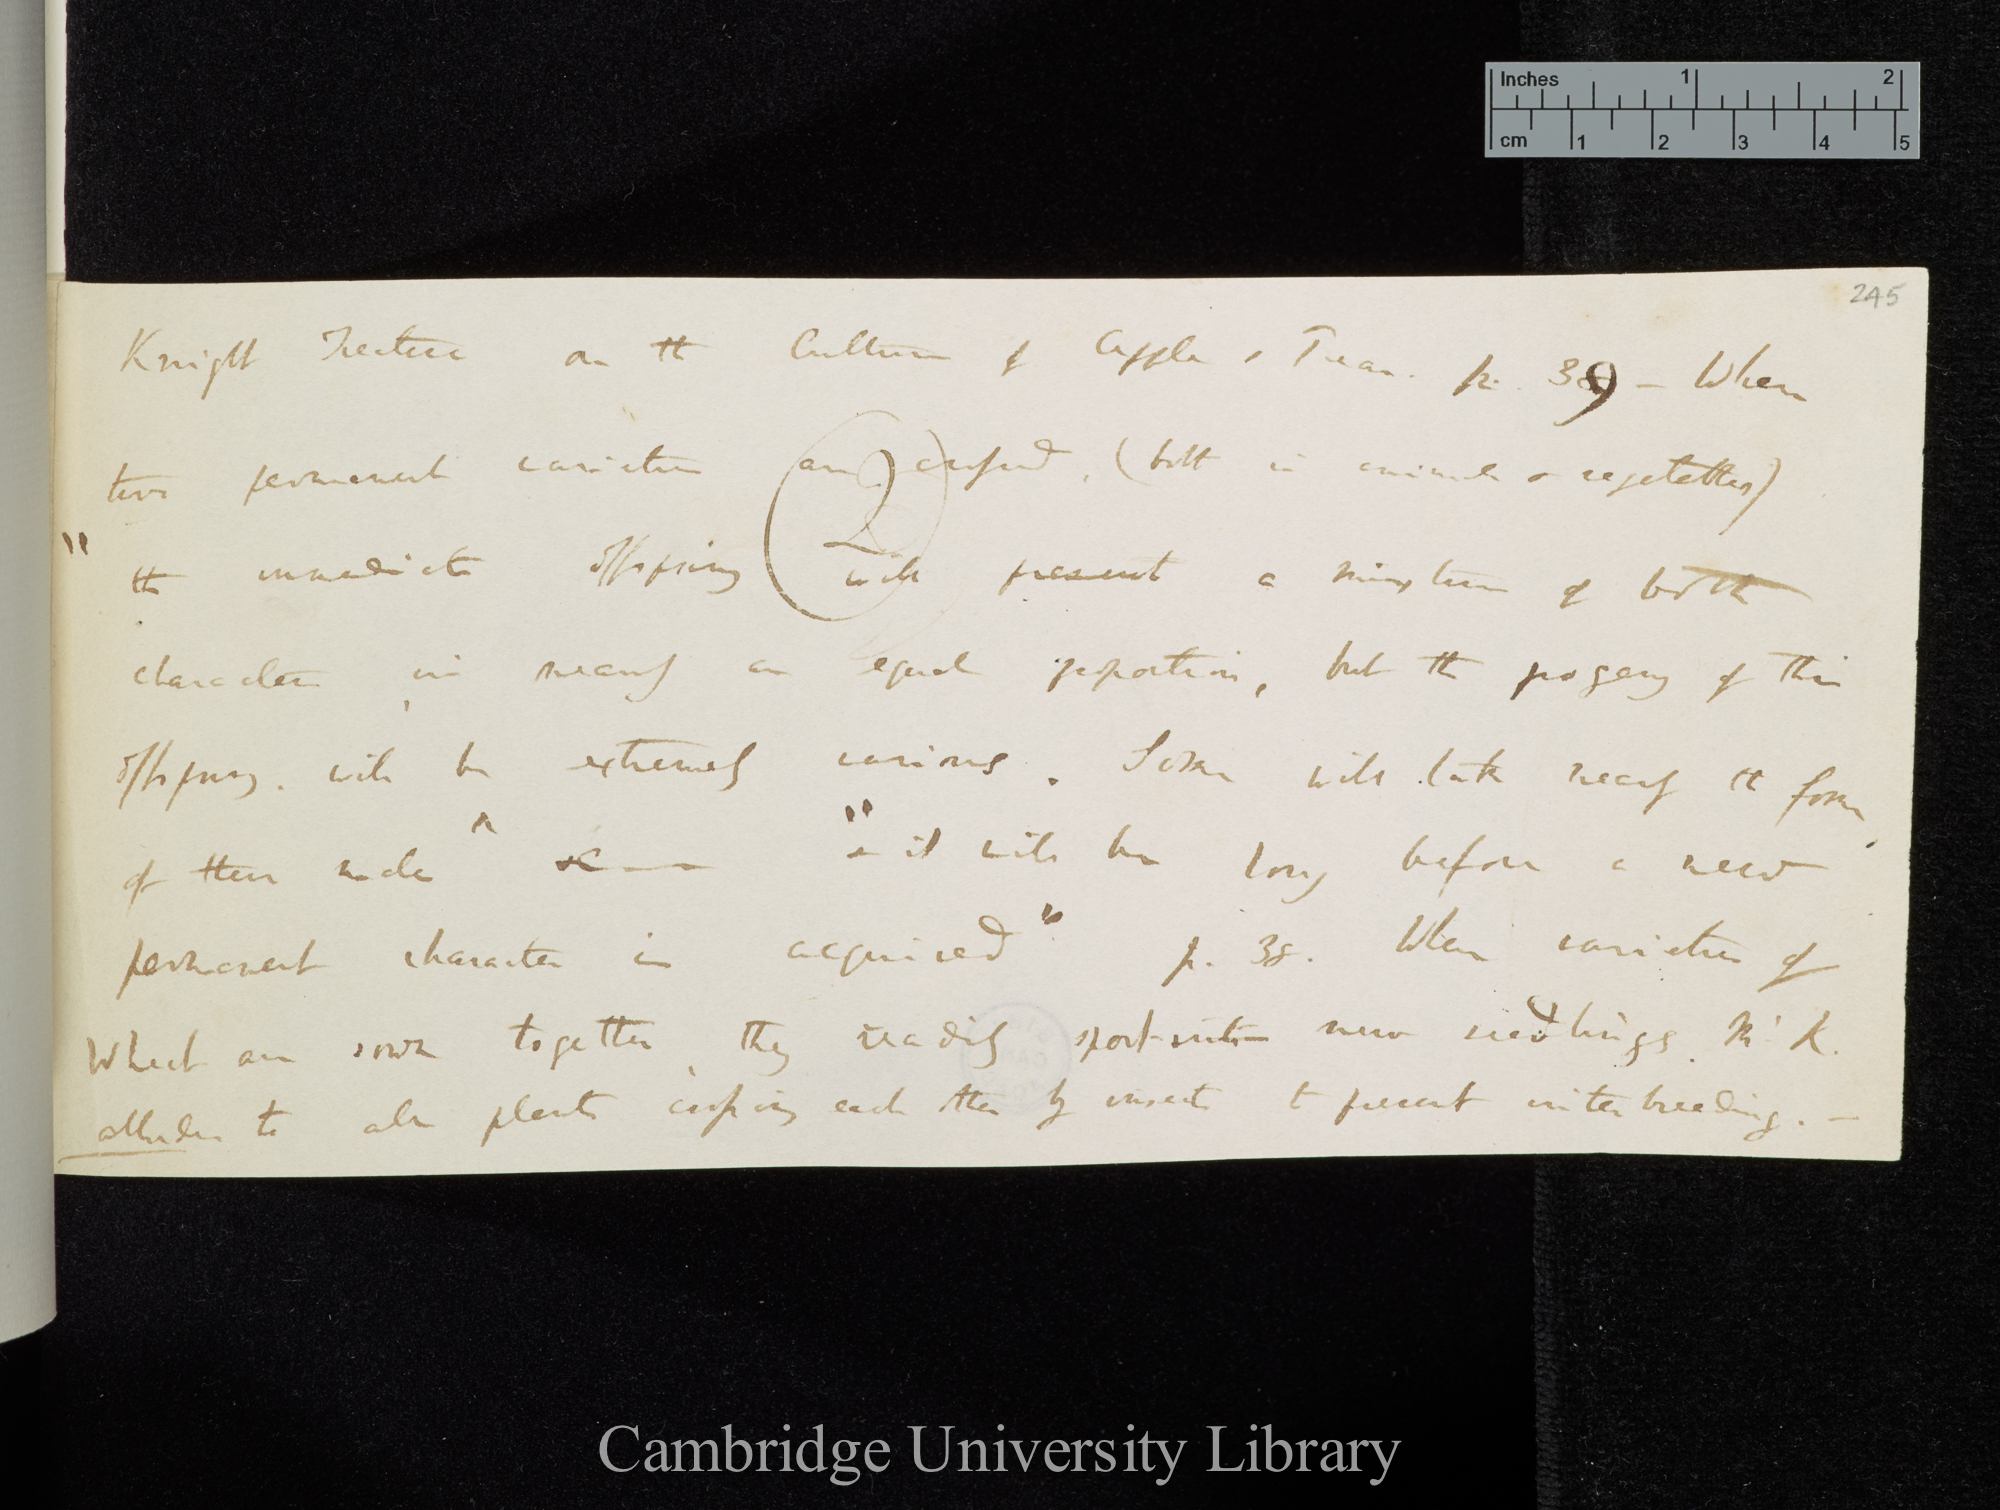 Inches 1 2
cm 1 2 3 4 5
245
Knight Treatise on the Culture of Apple & Pear. p. 39 — When
two permanent varieties are crossed, (both in animals & vegetables)
(2)
"the immediate offspring will present a mixture of both
character in nearly an equal proportion, but the progeny of this
offspring will be extremely various. Some will take nearly the form
of their male ^ &c —— "& it will be long before a new
permanent character is acquired" p. 38. When varieties of
Wheat are sown together, they readily sport into new seedlings. Mr K.
alludes to all plants crossing each other by insects to prevent interbreeding. —
Cambridge University Library